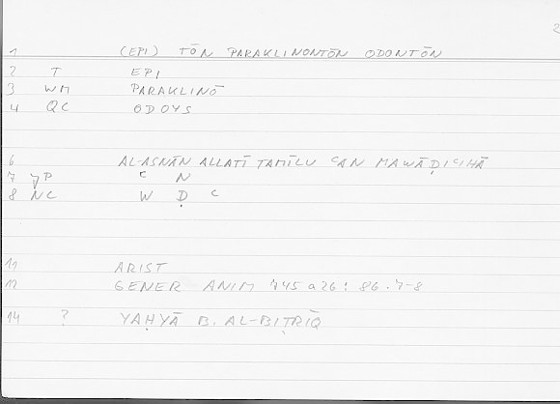 2
1 (EPI) TŌN PARAKLINONTŌN ODONTŌN
2 T EPI
3 WM PARAKLINŌ
4 QC ODOYS
6 AL-ASNĀN ALLATĪ TAMĪLU ʿAN MAWĀḌIʿIHĀ
7 yP ʿ N
8 NC W Ḍ ʿ
11 ARIST
12 GENER ANIM 745 a26: 86.7-8
14 ? YAḤYĀ B. AL-BIṬRĪQ